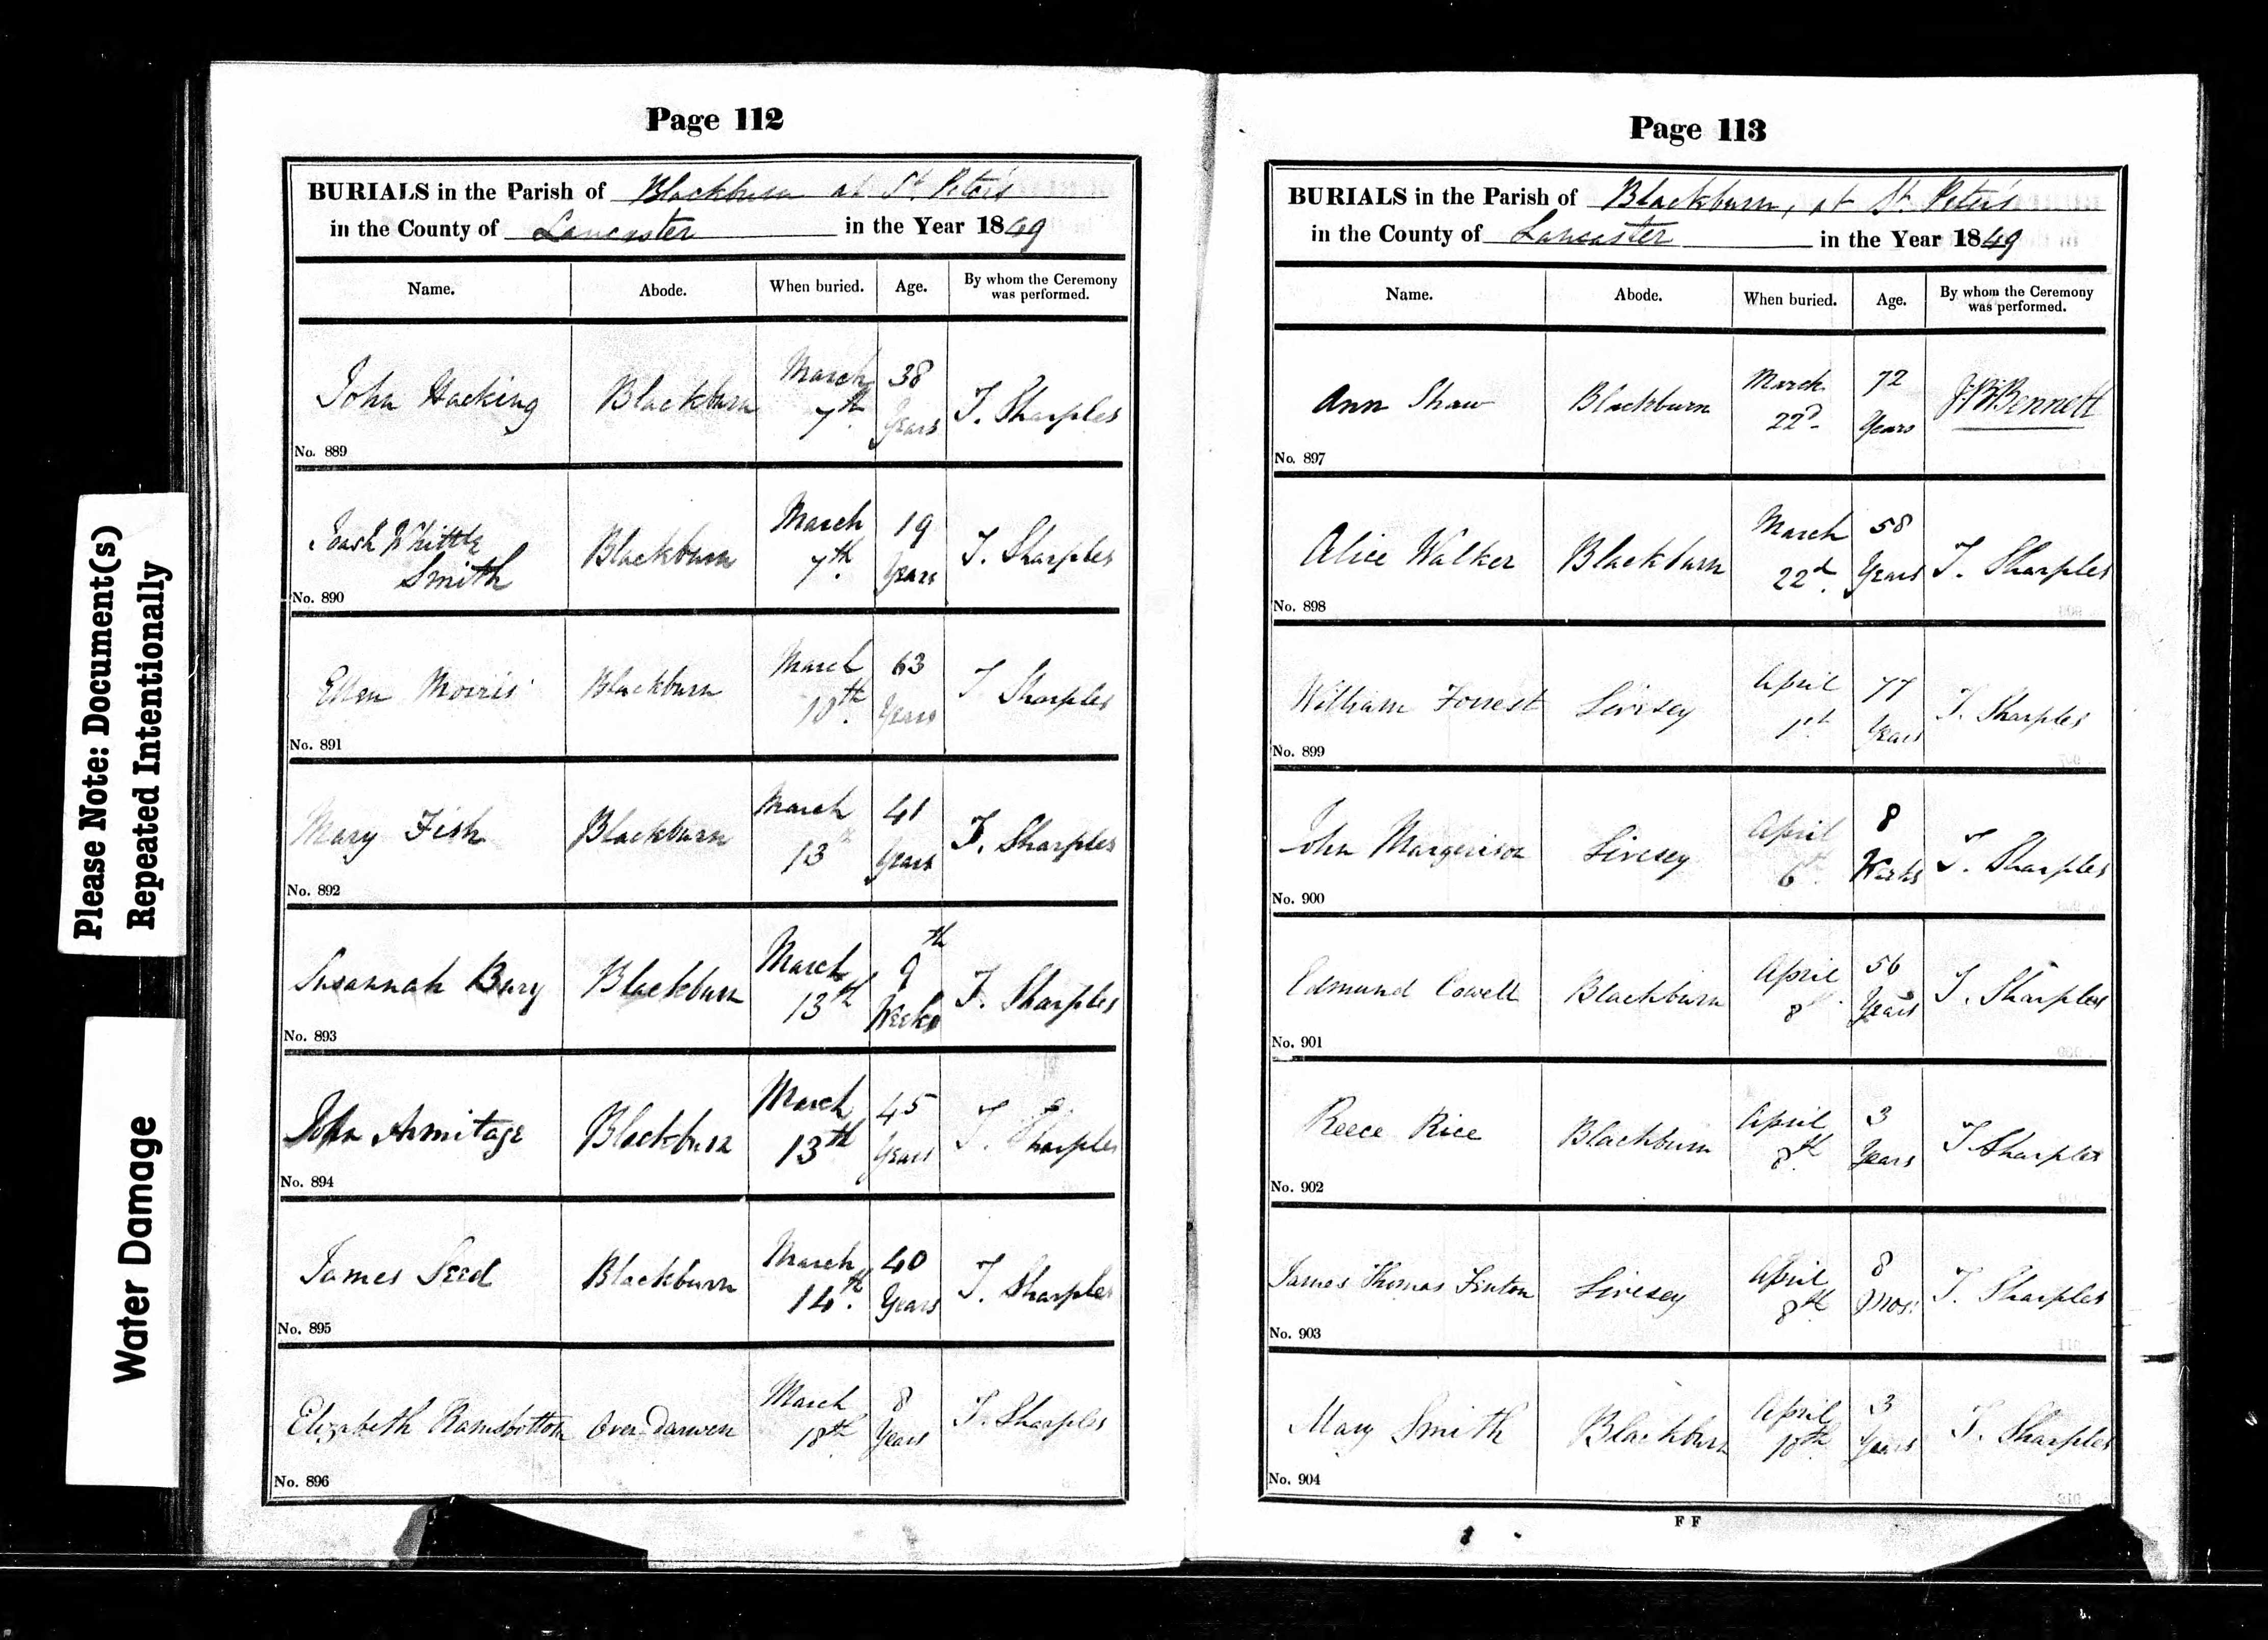 Please Note: Document(s)
Repeated Intentionally
Water Damage
Page 112
BURIALS in the Parish of Blackburn at St. Peter's
in the County of Lancaster in the Year 1849
Name. Abode. When buried. Age. By whom the Ceremony was performed.
John Hacking Blackburn March 7th. 38 Years T. Sharples
No. 889
Whittle Smith Blackburn March 7th. 19 Years T. Sharples
No. 890
Ellen Morris Blackburn March 10th. 63 Years T Sharples
No. 891
Mary Fish Blackburn March 13th 41 Years T. Sharples
No. 892
Susannah Bury Blackburn March 13th 9th Weeks T. Sharples
No. 893
John Armitage Blackburn March 13th 45 Years T. Sharples
No. 894
James Seed Blackburn March 14th. 40 Years T. Sharples
No. 895
Elizabeth Ramsbottom Over Darwen March 18th. 8 Years T. Sharples
No. 896
Page 113
BURIALS in the Parish of Blackburn, at St. Peter's
in the County of Lancaster in the Year 1849
Name. Abode. When buried. Age. By whom the Ceremony was performed.
Ann Shaw Blackburn March 22d 72 Years Bennett
No. 897
Alice Walker Blackburn March 22d. 58 Years T. Sharples
No. 898
William Forrest Livesey April 1st 77 Years T. Sharples
No. 899
John Margerison Livesey April 6th. 8 Weeks T. Sharples
No. 900
Edmund Cowell Blackburn April 8th. 56 Years T. Sharples
No. 901
Reece Rice Blackburn April 8th. 3 Years T. Sharples
No. 902
James Thomas Finton Livesey April 8th 8 Mos: T. Sharples
No. 903
Mary Smith Blackburn April 10th. 3 Years T. Sharples
No. 904
F F